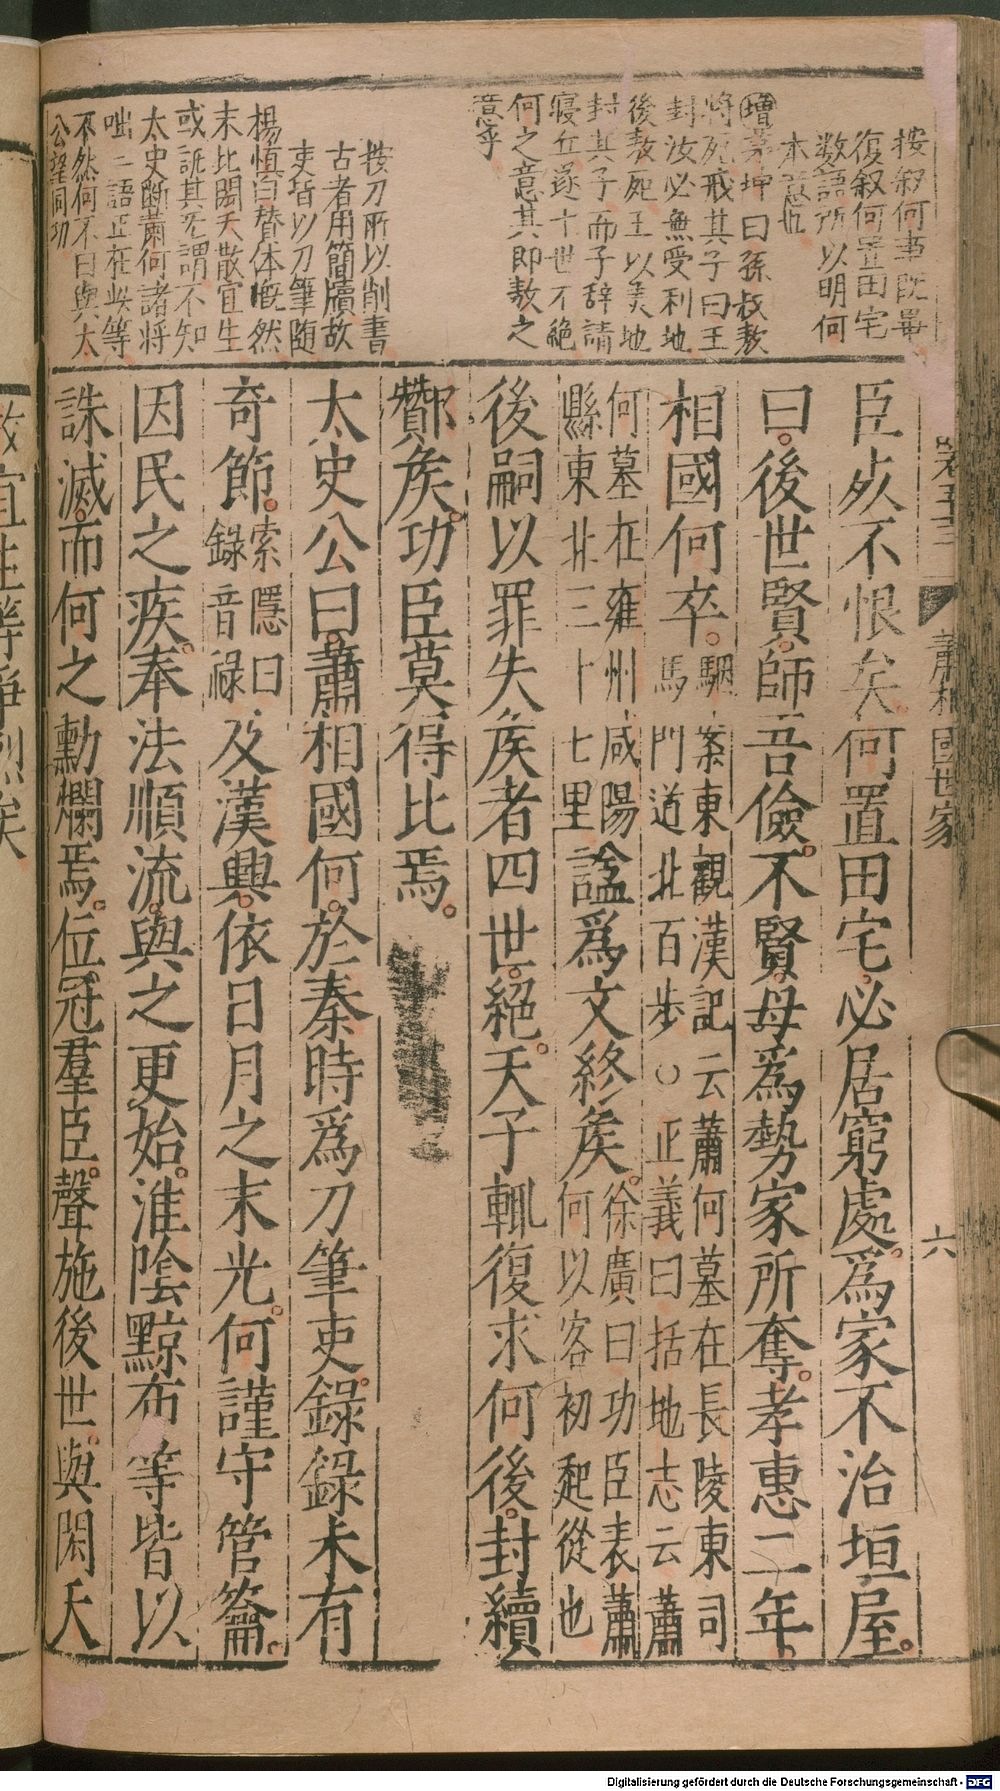 按叙何事既畢
復叙何置田宅
数語所以明何
本意也
增茅坤曰孫叔敖
將死戒其子曰王
封汝必無受利地
後敖死王以美地
封其子而子辞請
寝丘遂十世不絶
何之意其即敖之
意乎
按刀所以削書
古者用簡牘故
吏皆以刀筆随
楊慎曰替体慨然
末比閎夭散宜生
或訿其旡謂不知
太史断蕭何諸將
咄二語正在此等
不然何不曰與太
公望同功
卷五十三 蕭相國世家 六
臣死不恨矣何置田宅必居窮處爲家不治垣屋
曰後世賢師吾儉不賢母爲勢家所奪孝惠二年
相國何卒駰案東觀漢記云蕭何墓在長陵東司
馬門道北百步○正義曰括地志云蕭
何墓在雍州咸陽
縣東北三十七里諡爲文終矦徐廣曰功臣表蕭
何以客初起從也
後嗣以罪失矦者四世絕天子輒復求何後封續
酇矦功臣莫得比焉
太史公曰蕭相國何於秦時爲刀筆吏錄錄未有
奇節索隱曰
錄音祿及漢興依日月之末光何謹守管籥
因民之疾奉法順流與之更始淮陰黥布等皆以
誅滅而何之勳爛焉位冠羣臣聲施後世與閎夭
散宜生等爭烈矣
Digitalisierung gefördert durch die Deutsche Forschungsgemeinschaft - DFG